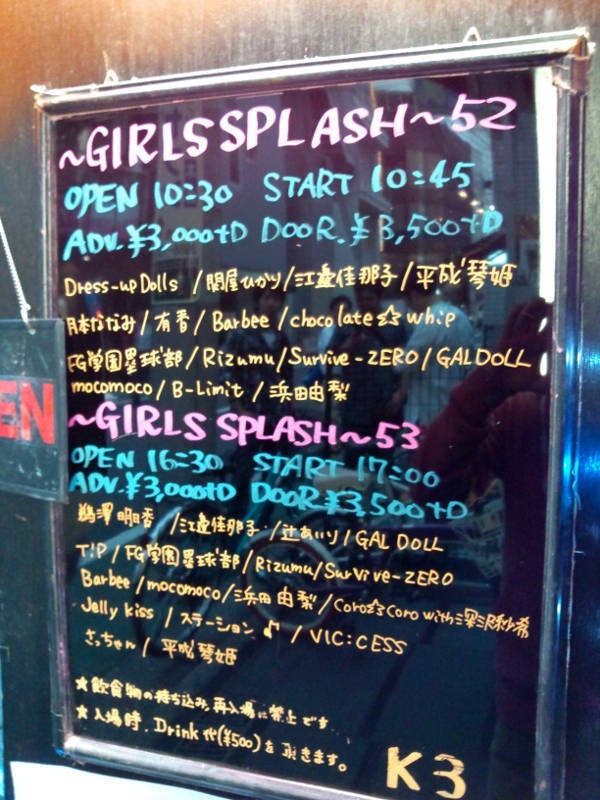 ~GIRLS SPLASH~52
OPEN 10:30 START 10:45
ADV.¥3,000+D DOOR.¥3,500+D
Dress-up Dolls / 関屋ひかり / 江藤佳那子 / 平成琴姫
月本ななみ / 有香 / Barbee / chocolate☆whip
FG学園塁球部 / Rizumu / Survive-ZERO / GALDOLL
mocomoco / B-Limit / 浜田由梨
EN
~GIRLS SPLASH~53
OPEN 16:30 START 17:00
ADV.¥3,000+D DOOR¥3,500+D
鵜澤明香 / 江藤佳那子 / 辻あいり / GAL DOLL
T!P / FG学園塁球部 / Rizumu / Survive-ZERO
Barbee / mocomoco / 浜田由梨 / Coro☆Coro with 深沢紗希
Jelly kiss / ステーション♪ / VIC:CESS
さっちゃん / 平成琴姫
★飲食物の持ち込み、再入場は禁止です
★入場時、Drink代(¥500)を頂きます。
K3